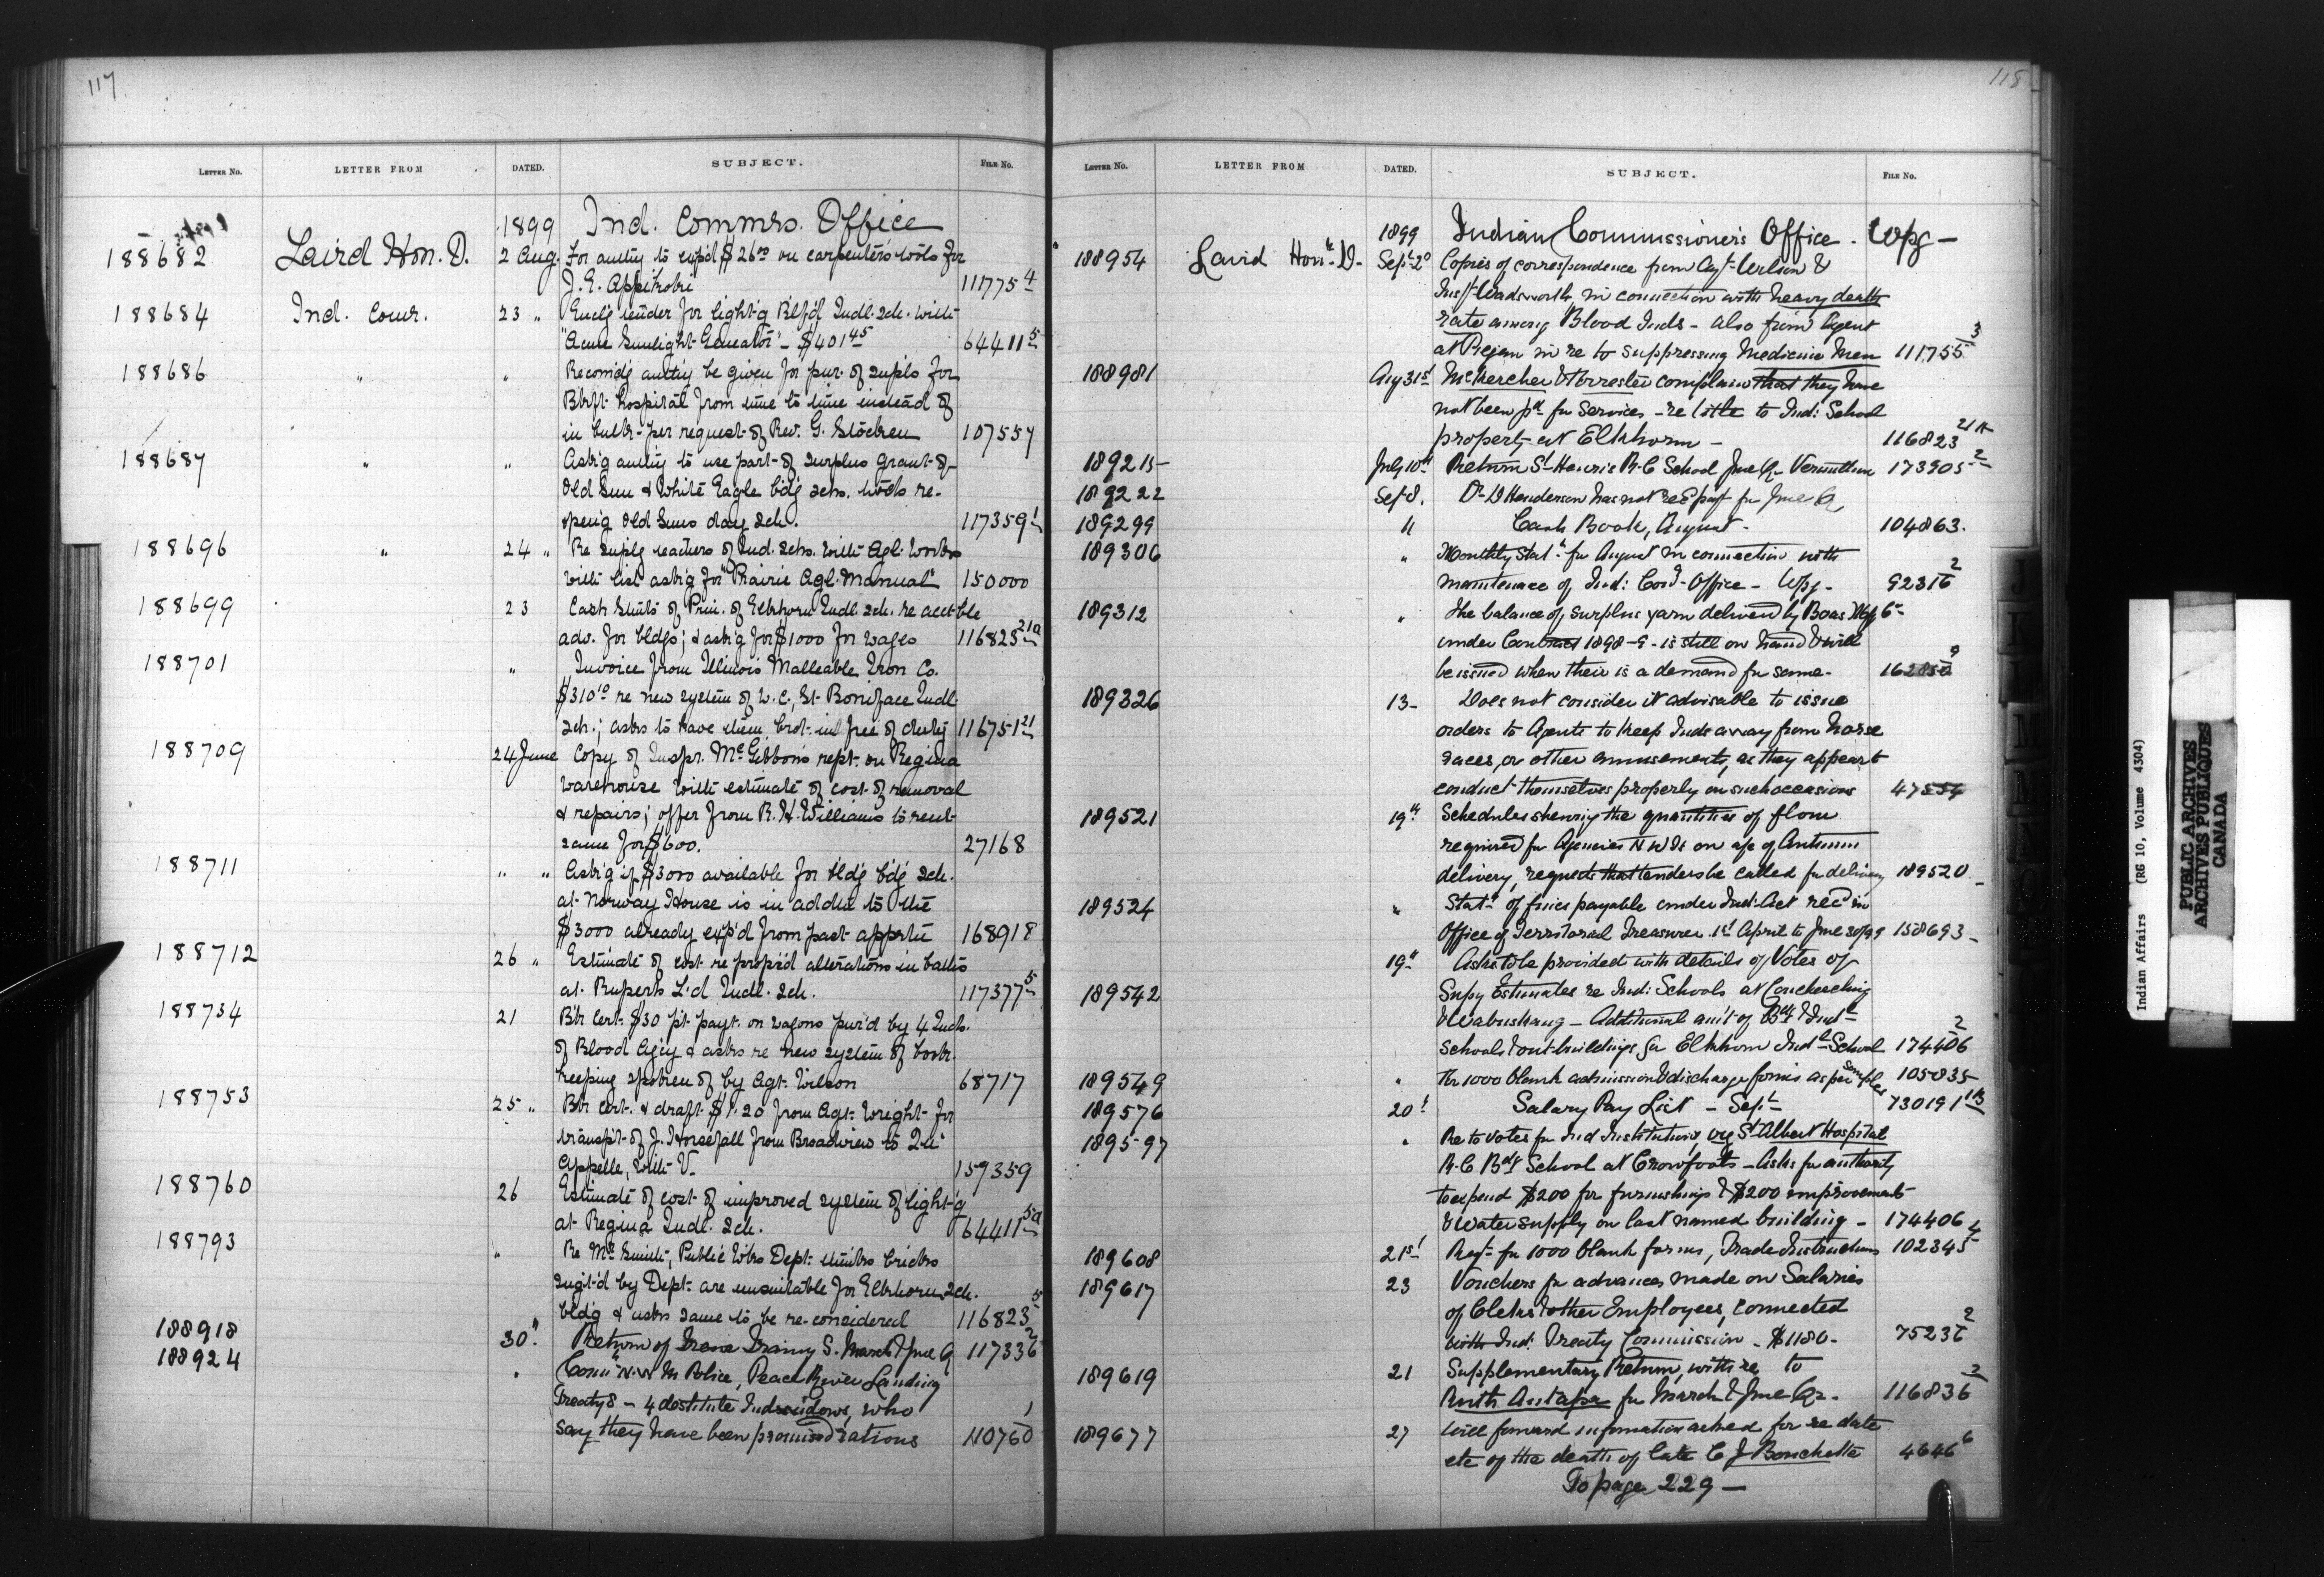 117
LETTER No. LETTER FROM DATED. SUBJECT. FILE No.
1899 Ind. Commrs. Office
188682 Laird Hon. D. 2 Aug. For authy to expd $26.00 on carpenter's tools for
J. E. 111775 4
188684 Ind. Comr. 23 " tender for light-g Indl. sch. with
"Acme Sunlight Generator" - $401 45 64411 5
188686 " " Recomdg authy be given for pur. of supls for
Blkft. hospital from time to time instead of
in bulk - per request of Rev. G. Stocken 107557
188687 " " Ask'g authy to use part of surplus grant of
Old Sun & White Eagle b'dg schs. to
Old Suns day sch. 117359 1
188696 " 24 " Re suplg teachers of Ind. schs. with Agl. works
with list ask'g for "Prairie Agl. Manual" 150000
188699 23 Cash Stmts of Prin. of Elkhorn Indl. sch. re acct-ble
adv. for bldgs; & ask'g for $1000 for wages 116823 21a
188701 " Invoice from Illinois Malleable Iron Co.
$310 10 re new system of W. C., St. Boniface Indl.
sch.; asks to have them brot. in free of duty 116751 21
188709 24 June Copy of Inspr. McGibbon's rept. on Regina
warehouse with estimate of cost of removal
& repairs; offer from R. H. Williams to rent
same for $600. 27168
188711 " " Ask'g if $3000 available for bldg b'dg sch.
at Norway House is in addtn to the
$3000 already exp'd from past apprtn 168918
188712 26 " Estimate of cost re prop'd alterations in
at Ruperts L'd Indl. sch. 117377 5
188734 21 Bk Cert. $30 pt. payt. on wagons pur'd by 4 Inds.
of Blood Ag'cy & asks re new system of book-
keeping spoken of by Agt. Wilson 68717
188753 25 " Bk cert. & draft $1.20 from Agt. Wright for
transp't of J. Horsefall from Broadview to Qu'
Appelle, with V. 157359
188760 26 Estimate of cost of improved system of light-g
at Regina Indl. sch. 64411 5a
188793 " Re Mr. Smith, Public Wks Dept. thinks bricks
sugt'd by Dept. are unsuitable for Elkhorn sch.
bldg & asks same to be re-considered 116823 5
188918 30 " Return of S. March & June Q 117336 2
188924 " Comr N.W M Police, Peace River Landing
Treaty 8 - 4 destitute Ind widows, who
say they have been promised rations 110760 1
118
LETTER No. LETTER FROM DATED. SUBJECT. FILE No.
1899 Indian Commissioner's Office. Wpg -
188954 Laird Honble D. Sept 2d Copies of correspondence from Agt Wilson &
Inspt Wadsworth, in connection with heavy death
rate among Blood Inds - also from Agent
at Piegan in re to suppressing Medicine Men 111755 3
188981 Aug 31st McKercher & Forrester complain that they have
not been pd for services - re title to Ind: School
property at Elkhorn - 116823 21A
189215 July 10th Return St Henri's R.C School June Qr Vermillion 173905 2
189222 Sept 8. Dr D Henderson has not recd payt for June Qr
189299 11 Cash Book, August. 104863.
189306 " Monthly Statt for August in connection with
maintenace of Ind: Comr Office - Wpg - 92316 2
189312 " The balance of surplus yarn delivered by Boas Mfg Co
under Contract 1898-9 - is still on hand & will
be issued when their is a demand for same - 162850 9
189326 13 - Does not consider it advisable to issue
orders to Agents to keep Inds away from horse
races, or other amusements, as they appear to
conduct themselves properly on such occasions 47554
189521 19th Schedules shewing the quantities of flour
required for Agencies N W T on a/c of Autumn
delivery, requests that tenders be called for delivery 189520 -
189524 " Statt of fines payable under Ind: Act recd in
Office of Territorial Treasurer 1st April to June 30/99 158693 -
19th Asks to be provided with details of Votes of
189542 Supy Estimates re Ind: Schools at Coucheeching
& Wabuskang - Additional amt of Bdg & Indl
schools & out-buildings for Elkhorn Indl School 174406 2
189549 " for 1000 blank admission & discharge forms as per Samples 105835
189576 20th Salary Pay List - Sept - 73019 1/13
189597 " Re to votes for Ind Institutions, viz St Albert Hospital
R.C Bdg School at Crowfoots - Asks for authority
to expend $200 for furnishings & $200 improvements
& Water supply on last named building - 174406
189608 21st Reqt for 1000 blank forms, Trade Instructions 102345 4
189617 23 Vouchers for advances made on Salaries
of Clerks & other Employees, connected
with Ind: Treaty Commission - $1180 - 75236 2
189619 21 Supplementary Return, with re to
Ruth Antapa for March & June Qr - 116836 2
189677 27 Will forward information asked for re date
etc of the death of late C J Bouchette 4646 6
To page 229 -
Indian Affairs (RG 10, Volume 4304)
PUBLIC ARCHIVES
ARCHIVES PUBLIQUES
CANADA